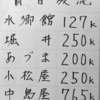 水郷館 127k
堀井 250k
あづま 200k
小松屋 250k
中島屋 765k